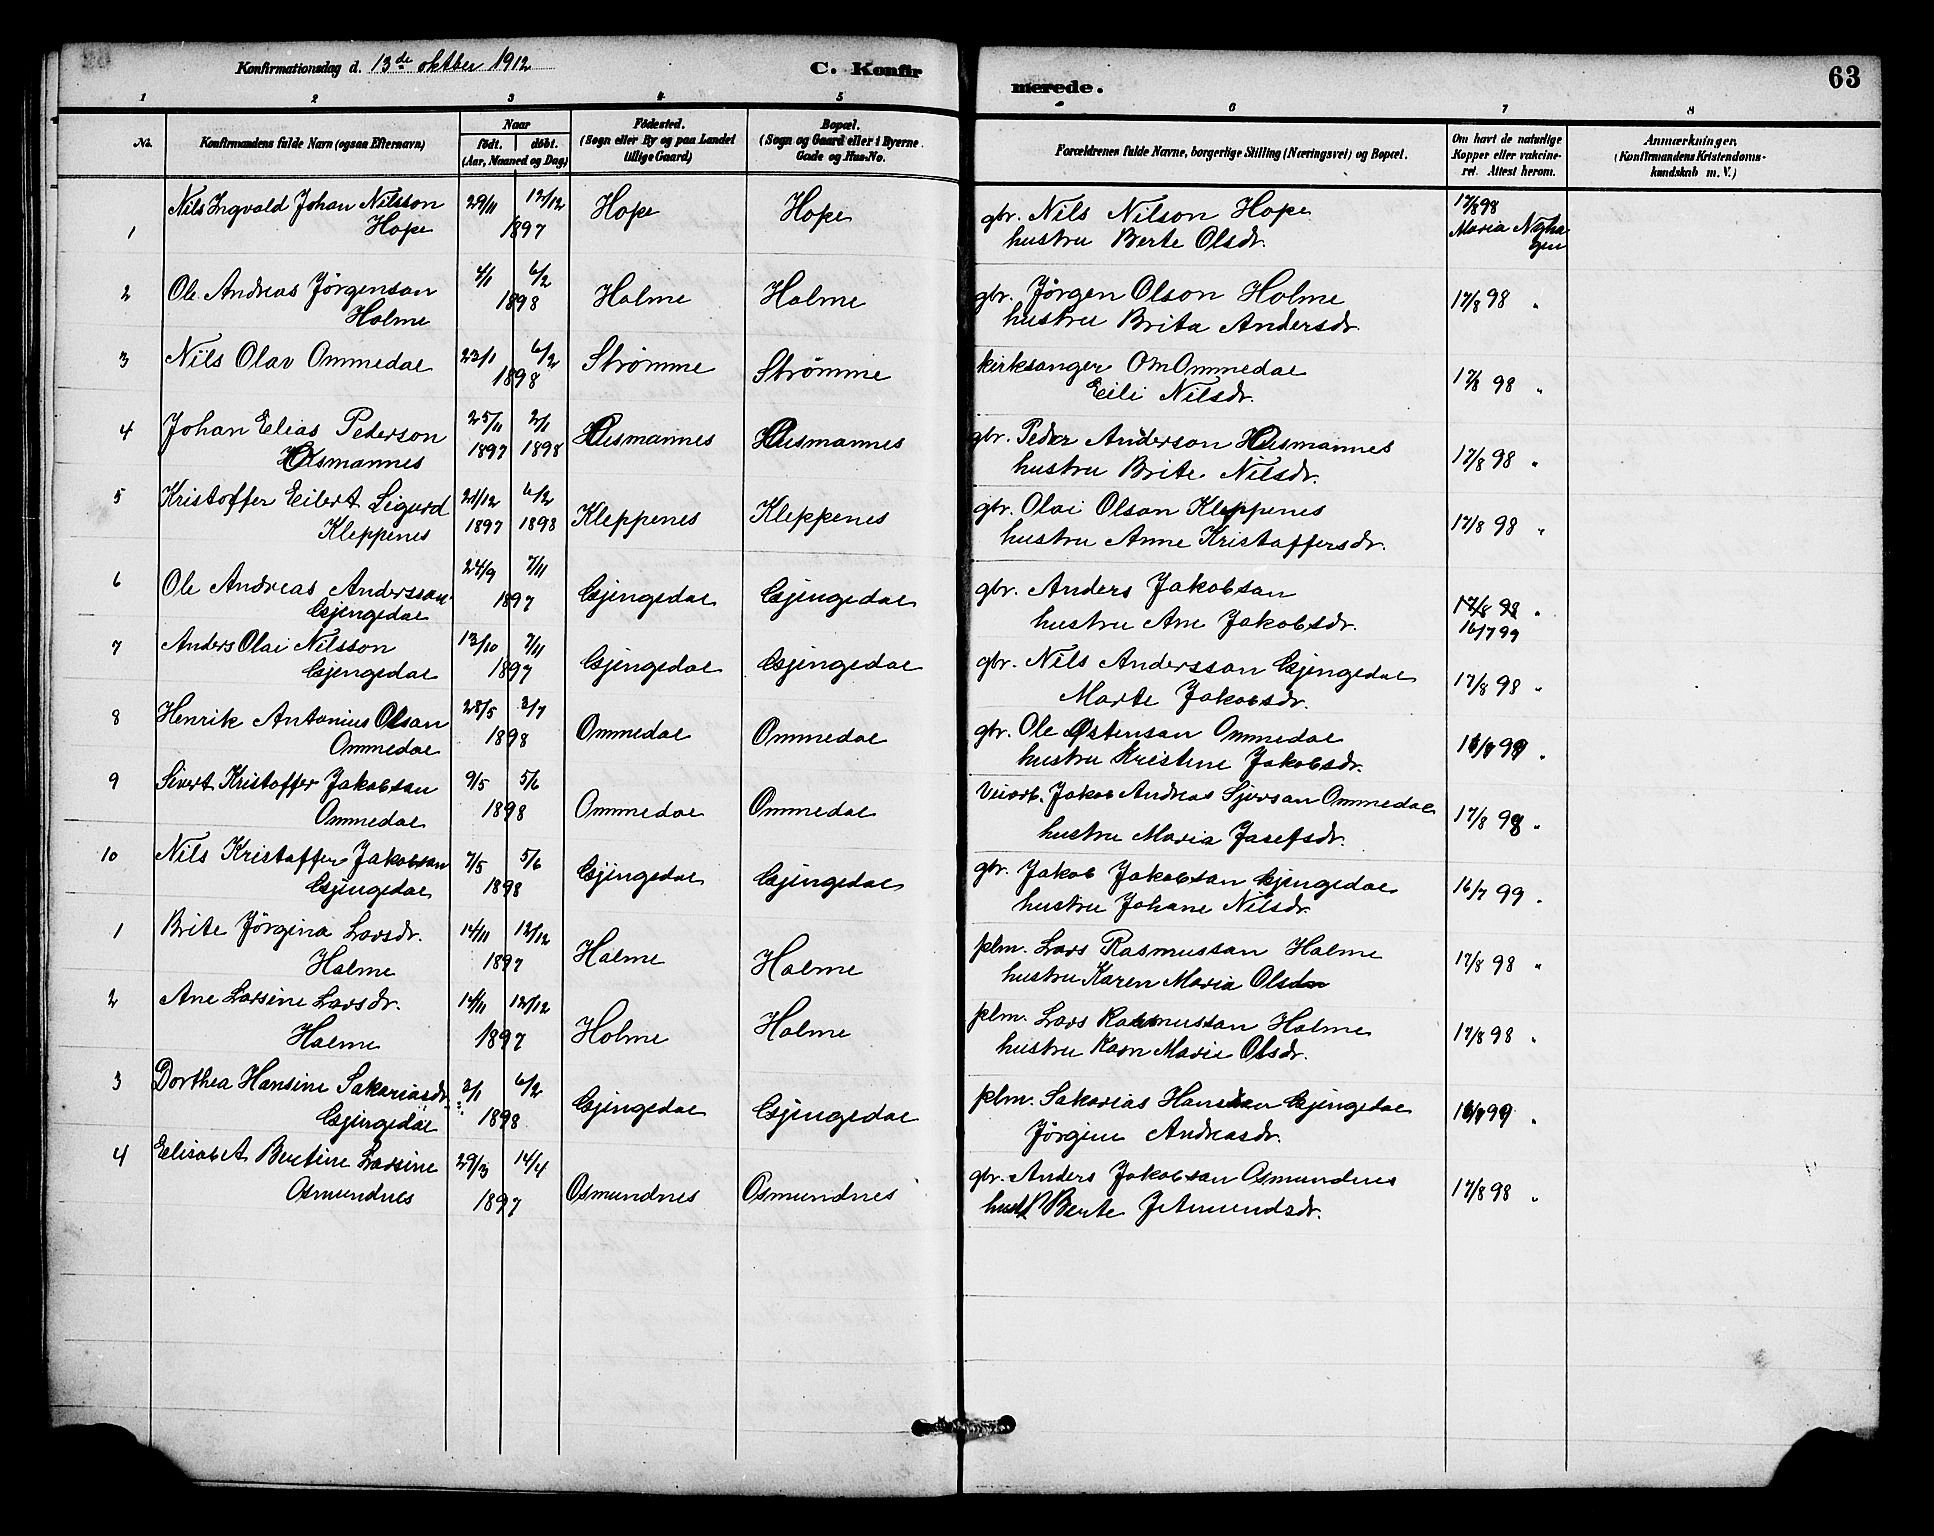 Konfirmationsdag d. 13de oktber 1912
C. Konfirmerede.
63
1 2 3 4 5 6 7 8
No.
Konfirmandens fulde Navn (ogsaa Efternavn)
Naar
födt. döbt.
(Aar, Maaned og Dag)
Födested.
(Sogn eller By og paa Landet
tillige Gaard)
Bopæl.
(Sogn og Gaard eller i Byerne
Gade og Hus-No.
Forældrenes fulde Navne, borgerlige Stilling (Næringsvei) og Bopæl.
Om havt de naturlige
Kopper eller vakcine-
ret. Attest herom.
Anmærkninger.
(Konfirmandens Kristendoms-
kundskab m. V.)
1 Nils Ingvald Johan Nilsson 29/11 12/12 Hope Hope gbr. Nils Nilson Hope 17/8 98
Hope 1897 hustru Berte Olsdr. Maria
2 Ole Andreas Jørgenson 4/1 6/2 Holme Holme gbr. Jørgen Olson Holme 17/8 98 "
Holme 1898 hustru Brita Andersdr.
3 Nils Olav Ommedal 23/1 6/2 Strømme Strømme kirksanger OM Ommedal 17/8 98 "
1898 Eili Nilsdr.
4 Johan Elias Pederson 25/11 2/1 Husmannes Husmannes gbr. Peder Anderson Husmannes 17/8 98 "
Husmannes 1897 1898 hustru Brite Nilsdr.
5 Kristoffer Eilert Sigurd 21/12 6/2 Kleppenes Kleppenes gbr. Olai Olson Kleppenes 17/8 98 "
Kleppenes 1897 1898 hustru Anne Kristoffersdr.
6 Ole Andreas Andersson 24/9 7/11 Gjengedal Gjengedal gbr. Anders Jakobson 17/8 98 "
Gjengedal 1897 hustru Ane Jakobsdr. 16/7 99
7 Anders Olai Nilsson 13/10 7/11 Gjengedal Gjengedal gbr. Nils Andersson Gjengedal 17/8 98 "
Gjengedal 1897 Marte Jakobsdr.
8 Henrik Antonius Olson 28/5 3/7 Ommedal Ommedal gbr. Ole Østenson Ommedal 16/7 99 "
Ommedal 1898 hustru Kristine Jakobsdr.
9 Sivert Kristoffer Jakobson 9/5 5/6 Ommedal Ommedal Veiarb. Jakob Andreas Sjurson Ommedal 17/8 98 "
Ommedal 1898 hustru Maria Josefsdr.
10 Nils Kristoffer Jakobson 7/5 5/6 Gjengedal Gjengedal gbr. Jakob Jakobson Gjengedal 16/7 99 "
Gjengedal 1898 hustru Johane Nilsdr.
1 Brite Jørgina Larsdr. 14/11 12/12 Holme Holme plm. Lars Rasmusson Holme 17/8 98 "
Holme 1897 hustru Karen Maria Olsdr
2 Ane Larsine Larsdr. 14/11 12/12 Holme Holme plm. Lars Rasmusson Holme 17/8 98 "
Holme 1897 hustru Karn Marie Olsdr.
3 Dorthea Hansine Sakariasdr. 3/1 6/2 Gjengedal Gjengedal plm. Sakarias Hansson Gjengedal 16/7 99 "
Gjengedal 1898 Jørgine Andreasdr.
4 Elisabet Bertine Larsine 29/3 14/4 Osmundnes Osmundnes gbr. Anders Jakobson Osmundnes 17/8 98 "
Osmundnes 1897 Berte